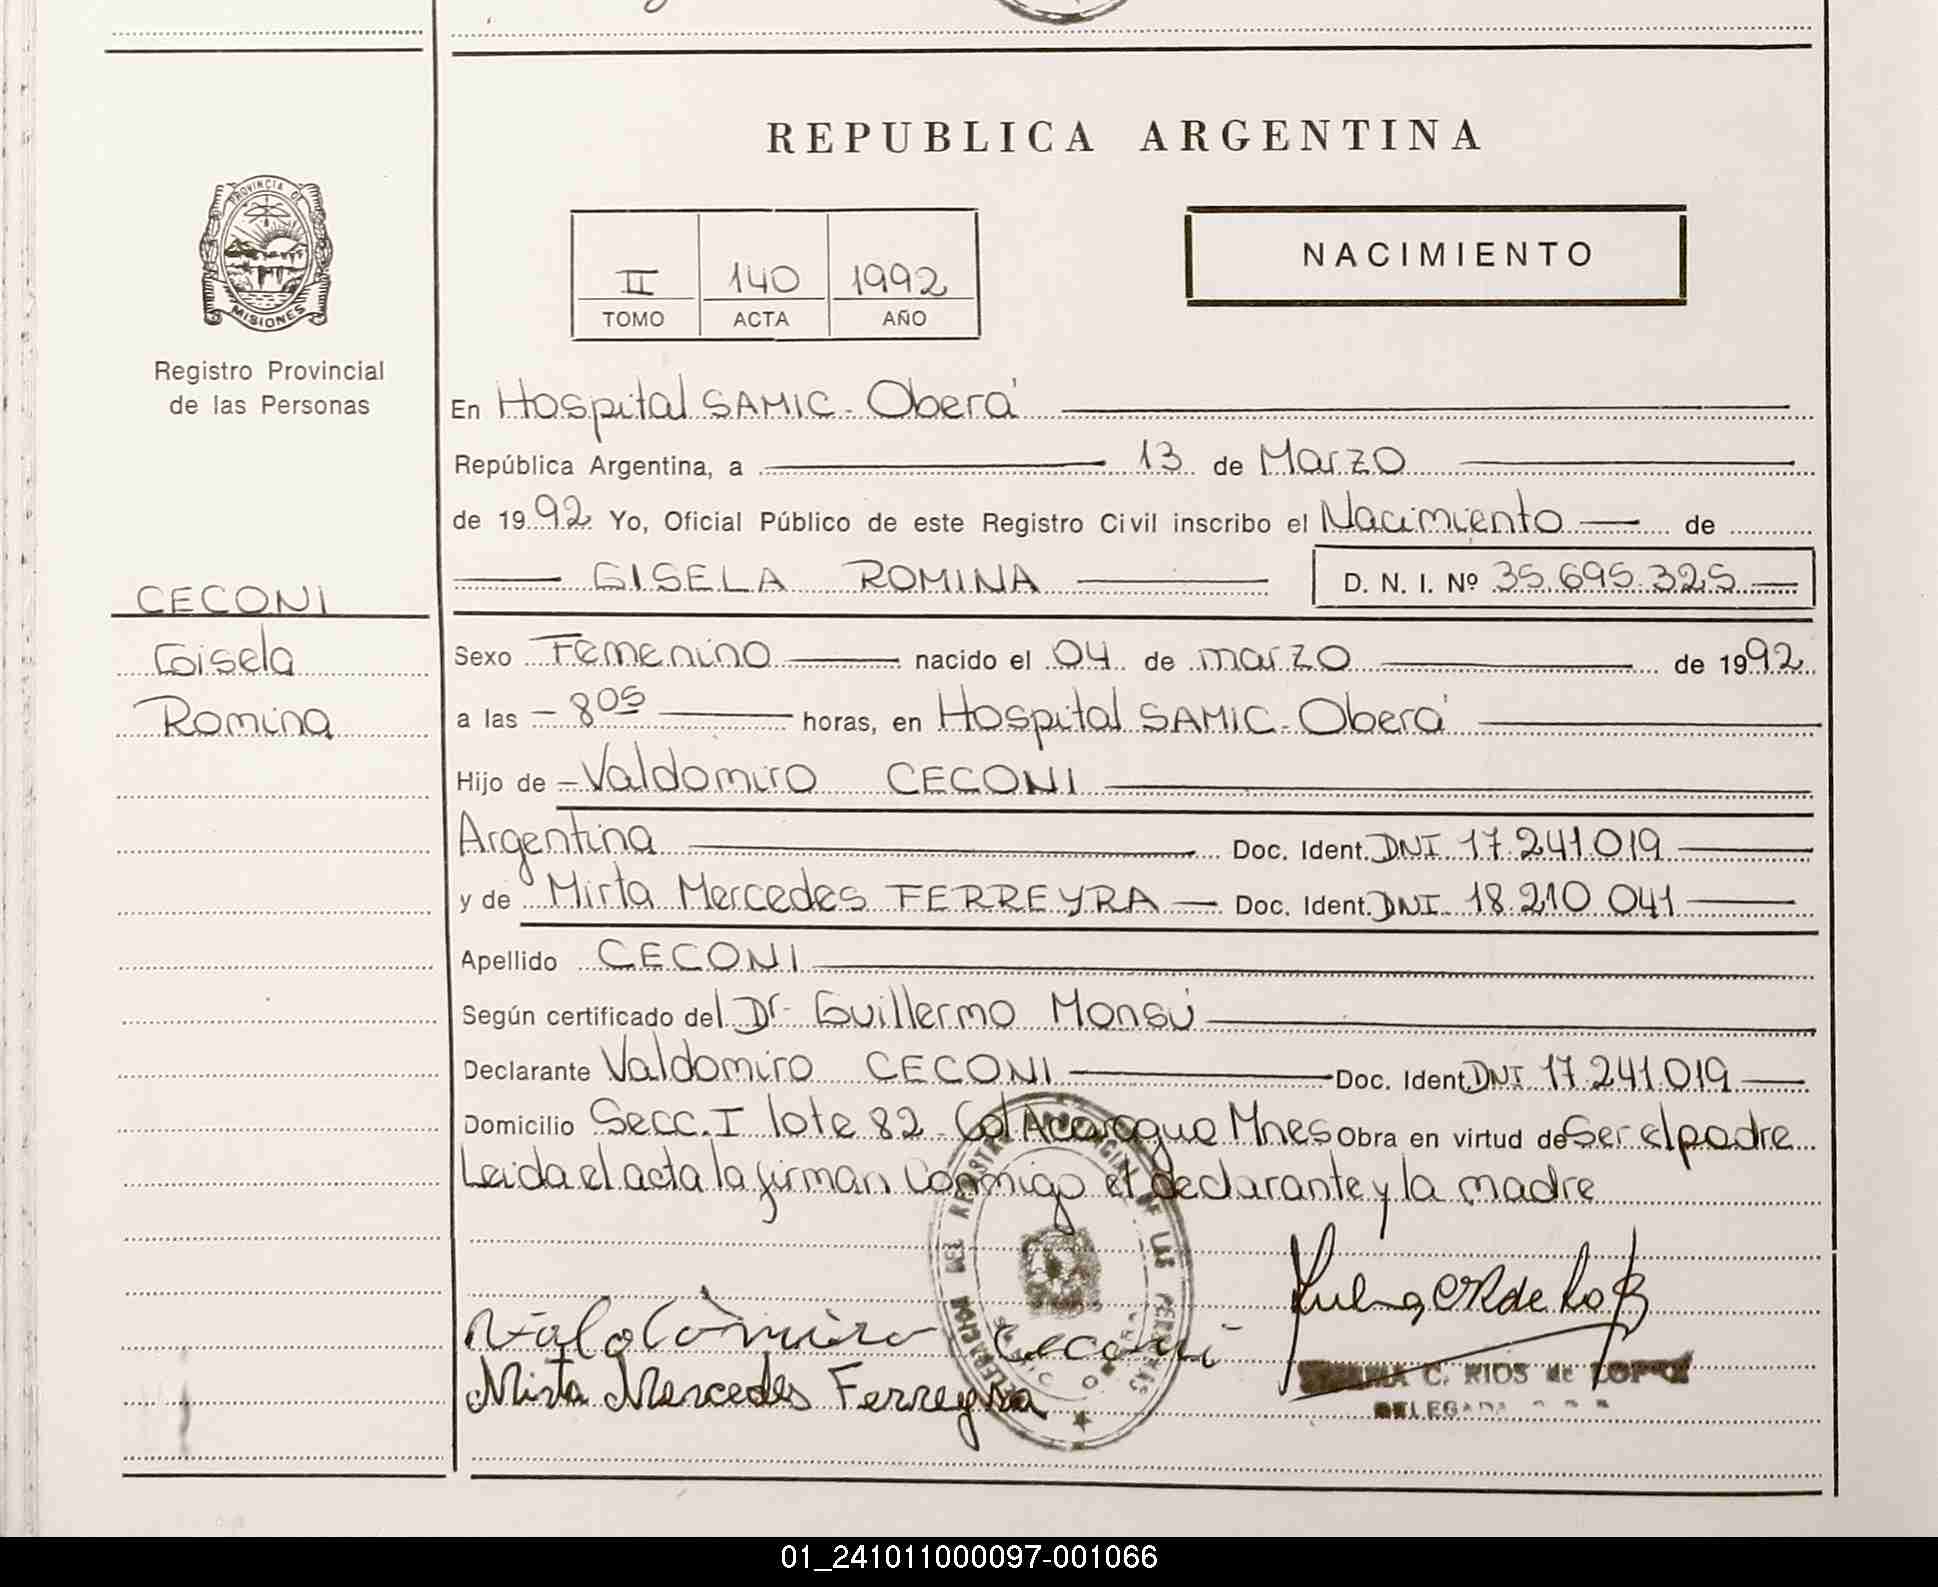 REPUBLICA ARGENTINA
PROVINCIA DE
MISIONES
Registro Provincial
de las Personas
II 140 1992
TOMO ACTA AÑO
NACIMIENTO
En Hospital SAMIC - Oberá
República Argentina, a 13 de Marzo
de 1992 Yo, Oficial Público de este Registro Civil inscribo el Nacimiento de
GISELA ROMINA D. N. I. Nº 35.695.325
CECONI
Gisela
Romina
Sexo Femenino nacido el 04 de marzo de 1992
a las 8 05 horas, en Hospital SAMIC - Oberá
Hijo de Valdomiro CECONI
Argentina Doc. Ident. DNI 17.241.019
y de Mirta Mercedes FERREYRA Doc. Ident. DNI 18.210.041
Apellido CECONI
Según certificado del Dr. Guillermo Monsú
Declarante Valdomiro CECONI Doc. Ident. DNI 17.241.019
Domicilio Secc. I lote 82 - Col Acaragua Mnes Obra en virtud de Ser el padre
Leida el acta la firman conmigo el declarante y la madre
DELEGACION DEL REGISTRO PROVINCIAL DE LAS PERSONAS
Valdomiro Ceconi
Mirta Mercedes Ferreyra
C. RIOS de LOPEZ
DELEGADA
01_241011000097-001066